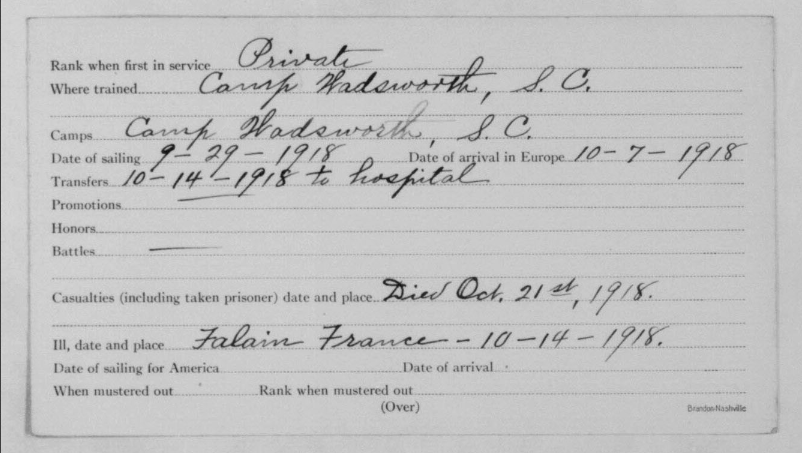 Rank when first in service Private
Where trained Camp Wadsworth, S. C.
Camps Camp Wadsworth, S. C.
Date of sailing 9-29-1918 Date of arrival in Europe 10-7-1918
Transfers 10-14-1918 to hospital
Promotions
Honors
Battles
Casualties (including taken prisoner) date and place Died Oct. 21st, 1918.
Ill, date and place Falain France - 10-14-1918.
Date of sailing for America Date of arrival
When mustered out Rank when mustered out
(Over)
Brandon-Nashville